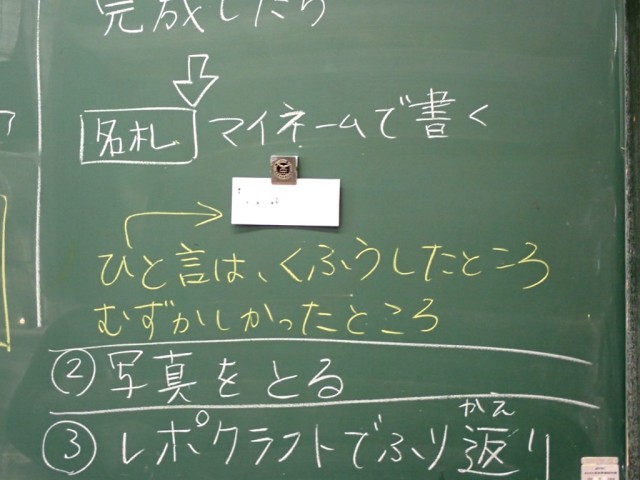 完成したら
名札 マイネームで書く
ひと言は、くふうしたところ
むずかしかったところ
②写真をとる
かえ
③レポクラフトでふり返り